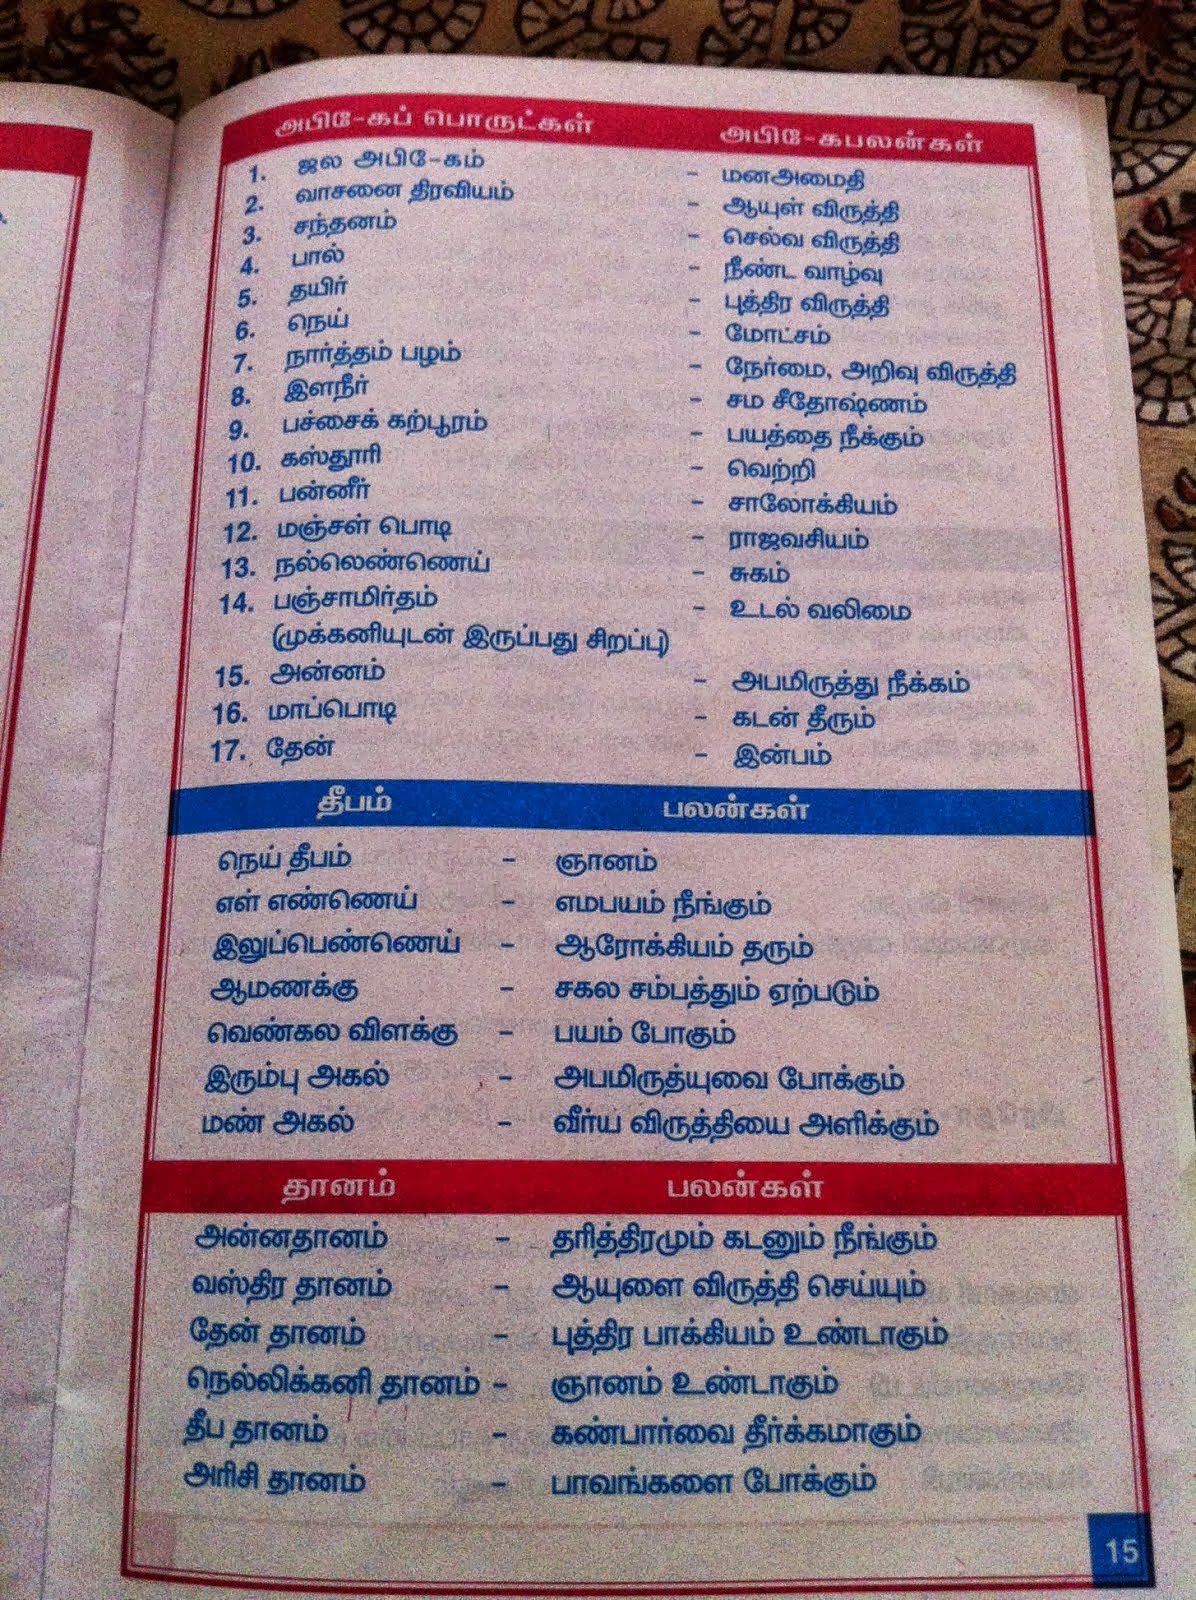 அபிசே-கப் பொருட்கள் அபிசே-கபலன்கள்
1. ஜல அபிசே-கம் - மனஅமைதி
2. வாசனை திரவியம் - ஆயுள் விருத்தி
3. சந்தனம் - செல்வ விருத்தி
4. பால் - நீண்ட வாழ்வு
5. தயிர் - புத்திர விருத்தி
6. நெய் - மோட்சம்
7. நார்த்தம் பழம் - நேர்மை, அறிவு விருத்தி
8. இளநீர் - சம சீதோஷ்ணம்
9. பச்சைக் கற்பூரம் - பயத்தை நீக்கும்
10. கஸ்தூரி - வெற்றி
11. பன்னீர் - சாலோக்கியம்
12. மஞ்சள் பொடி - ராஜவசியம்
13. நல்லெண்ணெய் - சுகம்
14. பஞ்சாமிர்தம் - உடல் வலிமை
(முக்கனியுடன் இருப்பது சிறப்பு)
15. அன்னம் - அபமிருத்து நீக்கம்
16. மாப்பொடி - கடன் தீரும்
17. தேன் - இன்பம்
தீபம் பலன்கள்
நெய் தீபம் - ஞானம்
எள் எண்ணெய் - எமபயம் நீங்கும்
இலுப்பெண்ணெய் - ஆரோக்கியம் தரும்
ஆமணக்கு - சகல சம்பத்தும் ஏற்படும்
வெண்கல விளக்கு - பயம் போகும்
இரும்பு அகல் - அபமிருத்யுவை போக்கும்
மண் அகல் - வீர்ய விருத்தியை அளிக்கும்
தானம் பலன்கள்
அன்னதானம் - தரித்திரமும் கடனும் நீங்கும்
வஸ்திர தானம் - ஆயுளை விருத்தி செய்யும்
தேன் தானம் - புத்திர பாக்கியம் உண்டாகும்
நெல்லிக்கனி தானம் - ஞானம் உண்டாகும்
தீப தானம் - கண்பார்வை தீர்க்கமாகும்
அரிசி தானம் - பாவங்களை போக்கும்
15